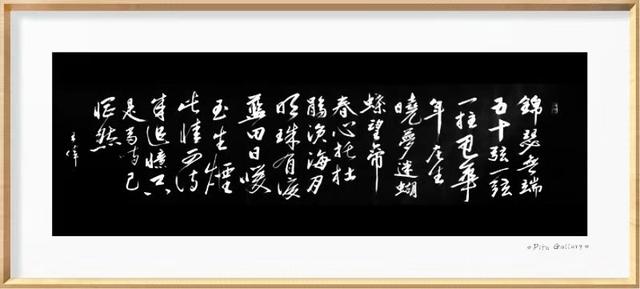 錦瑟無端
五十弦一弦
一柱思華
年庄生
曉夢迷蝴
蝶望帝
春心托杜
鵑滄海月
明珠有淚
藍田日暖
玉生煙
此情可待
成追憶只
是當時已
惘然
Gallery